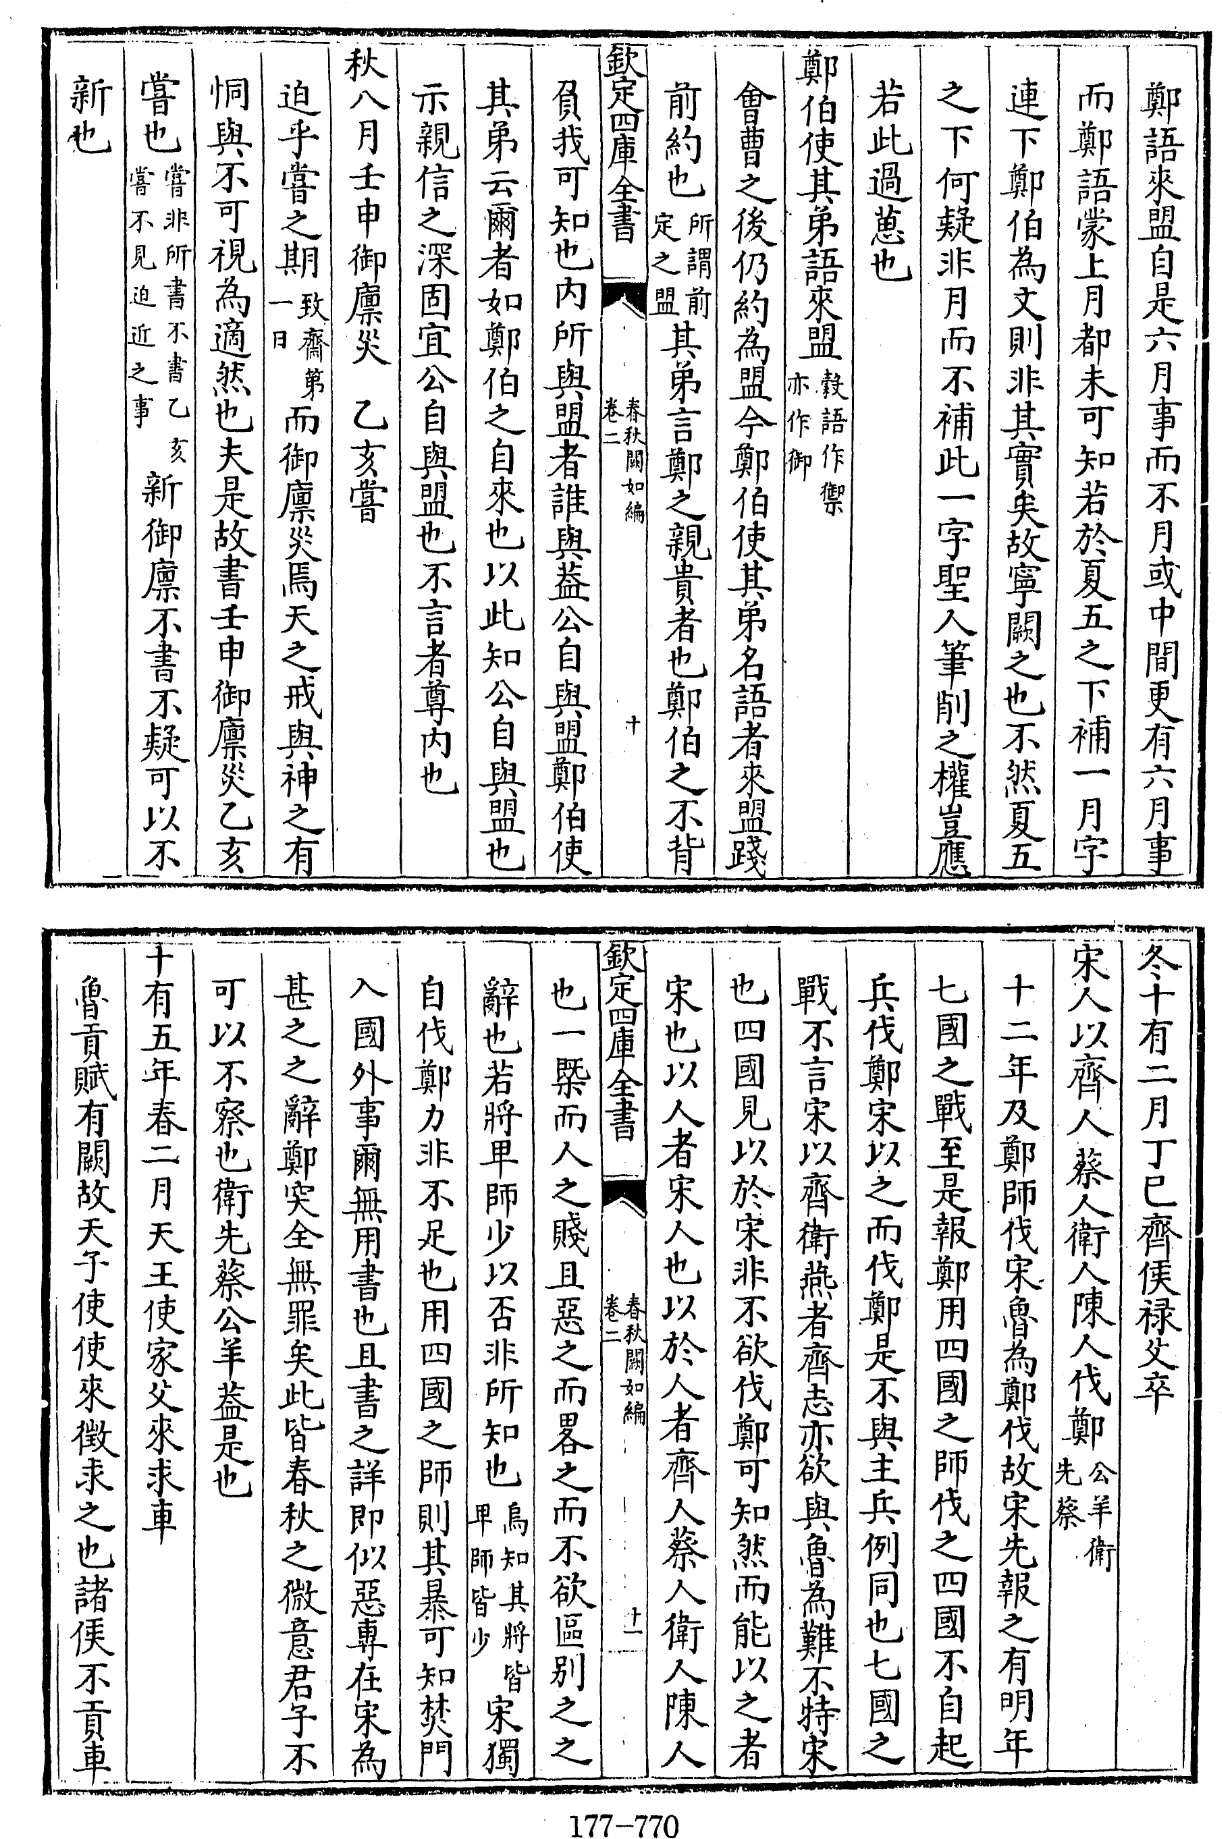 鄭語來盟自是六月事而不月或中間更有六月事
而鄭語蒙上月都未可知若於夏五之下補一月字
連下鄭伯為文則非其實矣故寧闕之也不然夏五
之下何疑非月而不補此一字聖人筆削之權豈應
若此過葸也
鄭伯使其弟語來盟穀語作禦亦作御
會曹之後仍約為盟今鄭伯使其弟名語者來盟踐
前約也所謂前定之盟其弟言鄭之親貴者也鄭伯之不背
欽定四庫全書 春秋闕如編卷二 十
負我可知也内所與盟者誰與葢公自與盟鄭伯使
其弟云爾者如鄭伯之自來也以此知公自與盟也
示親信之深固宜公自與盟也不言者尊内也
秋八月壬申御廪災 乙亥嘗
迫乎嘗之期致齋第一日而御廪災焉天之戒與神之有
恫與不可視為適然也夫是故書壬申御廪災乙亥
嘗也嘗非所書不書乙亥嘗不見迫近之事新御廪不書不疑可以不
新也
冬十有二月丁巳齊侯禄父卒
宋人以齊人蔡人衛人陳人伐鄭公羊衛先蔡
十二年及鄭師伐宋魯為鄭伐故宋先報之有明年
七國之戰至是報鄭用四國之師伐之四國不自起
兵伐鄭宋以之而伐鄭是不與主兵例同也七國之
戰不言宋以齊衛燕者齊志亦欲與魯為難不特宋
也四國見以於宋非不欲伐鄭可知然而能以之者
宋也以人者宋人也以於人者齊人蔡人衛人陳人
欽定四庫全書 春秋闕如編卷二 十一
也一槩而人之賤且惡之而畧之而不欲區别之之
辭也若將卑師少以否非所知也烏知其將皆卑師皆少宋獨
自伐鄭力非不足也用四國之師則其暴可知焚門
入國外事爾無用書也且書之詳即似惡專在宋為
甚之之辭鄭突全無罪矣此皆春秋之微意君子不
可以不察也衛先蔡公羊葢是也
十有五年春二月天王使家父來求車
魯貢賦有闕故天子使使來徵求之也諸侯不貢車
177-770